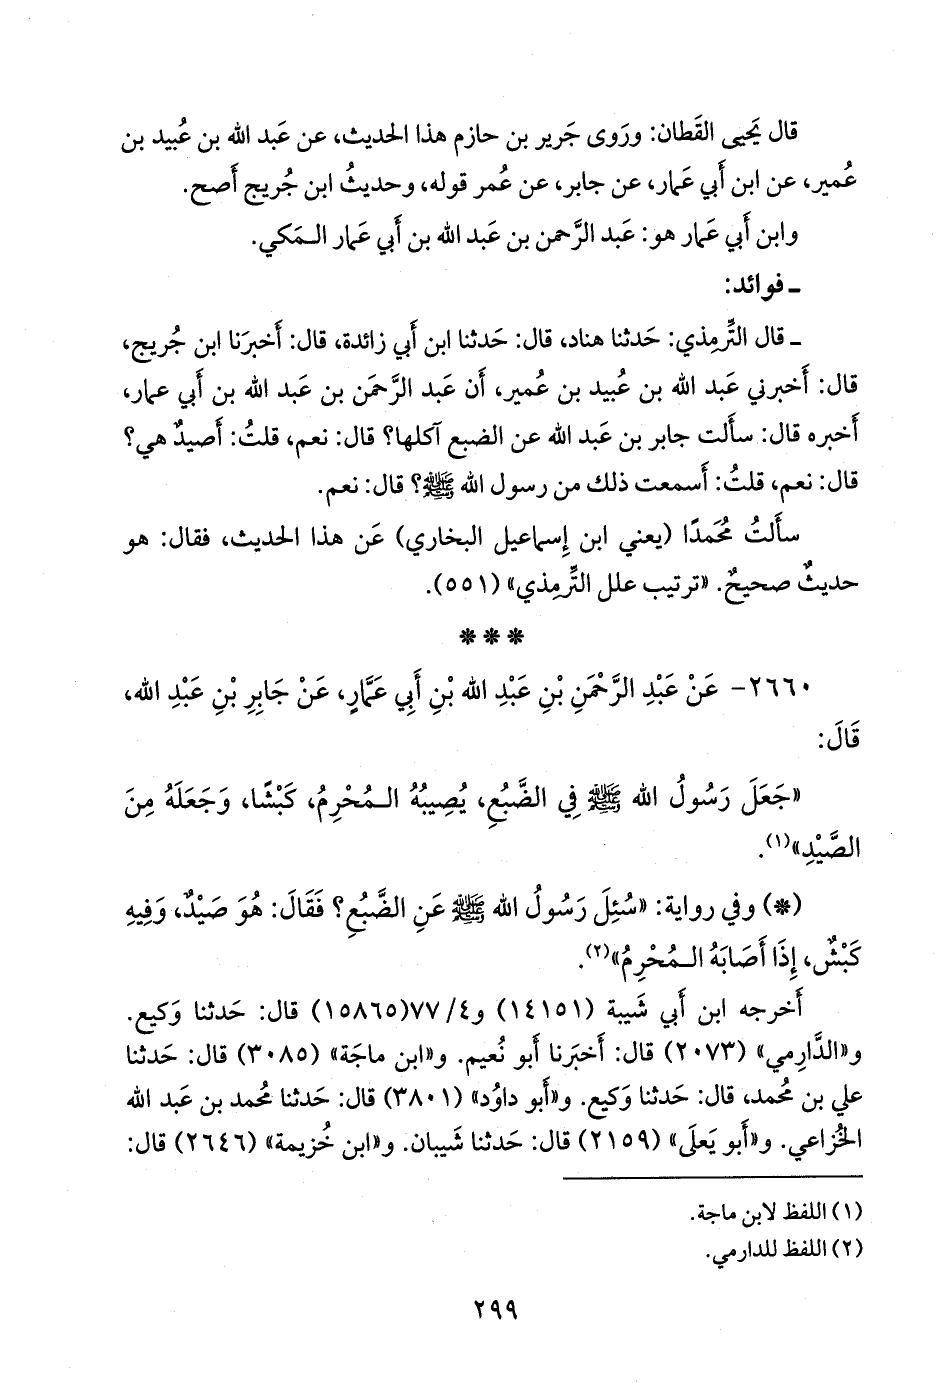 قال يَحيى القَطان: ورَوى جَرير بن حازم هذا الحَديث، عن عَبد الله بن عُبيد بن
عُمير، عن ابن أَبي عَمار، عن جابر، عن عُمر قوله، وحديثُ ابن جُريج أَصح.
وابن أَبي عَمار هو: عَبد الرَّحمن بن عَبد الله بن أَبي عَمار الـمَكي.
ـ فوائد:
ـ قال التِّرمِذي: حَدثنا هناد، قال: حَدثنا ابن أَبي زائدة، قال: أَخبرَنا ابن جُريج،
قال: أَخبرني عَبد الله بن عُبيد بن عُمير، أَن عَبد الرَّحمَن بن عَبد الله بن أَبي عمار،
أَخبره قال: سأَلت جابر بن عَبد الله عن الضبع آكلها؟ قال: نعم، قلتُ: أَصيدٌ هي؟
قال: نعم، قلتُ: أَسمعت ذلك من رسول الله ﷺ؟ قال: نعم.
سأَلتُ مُحَمدًا (يعني ابن إِسماعيل البخاري) عَن هذا الحَديث، فقال: هو
حديثٌ صحيحٌ. «ترتيب علل التِّرمِذي» (٥٥١).
***
٢٦٦٠- عَنْ عَبْدِ الرَّحْمَنِ بْنِ عَبْدِ الله بْنِ أَبِي عَمَّارٍ، عَنْ جَابِرِ بْنِ عَبْدِ الله،
قَالَ:
«جَعَلَ رَسُولُ الله ﷺ فِي الضَّبُعِ، يُصِيبُهُ الـمُحْرِمُ، كَبْشًا، وَجَعَلَهُ مِنَ
الصَّيْدِ»(١).
(*) وفي رواية: «سُئِلَ رَسُولُ الله ﷺ عَنِ الضَّبُعِ؟ فَقَالَ: هُوَ صَيْدٌ، وَفِيهِ
كَبْشٌ، إِذَا أَصَابَهُ الـمُحْرِمُ»(٢).
أَخرجه ابن أَبي شَيبة (١٤١٥١) و٤/ ٧٧(١٥٨٦٥) قال: حَدثنا وَكيع.
و«الدَّارِمي» (٢٠٧٣) قال: أَخبَرنا أَبو نُعيم. و«ابن ماجَة» (٣٠٨٥) قال: حَدثنا
علي بن مُحمد، قال: حَدثنا وَكيع. و«أَبو داوُد» (٣٨٠١) قال: حَدثنا مُحمد بن عَبد الله
الخُزاعي. و«أَبو يَعلَى» (٢١٥٩) قال: حَدثنا شَيبان. و«ابن خُزيمة» (٢٦٤٦) قال:
(١) اللفظ لابن ماجة.
(٢) اللفظ للدارمي.
٢٩٩